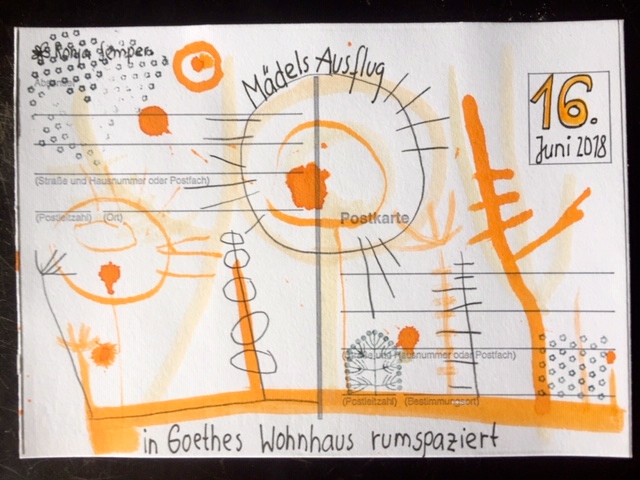 Mädels Ausflug
16.
Juni 2018
(Straße und Hausnummer oder Postfach)
(Postleitzahl) (Ort)
Postkarte
(Straße und Hausnummer oder Postfach)
(Postleitzahl) (Bestimmungsort)
in Goethes Wohnhaus rumspaziert